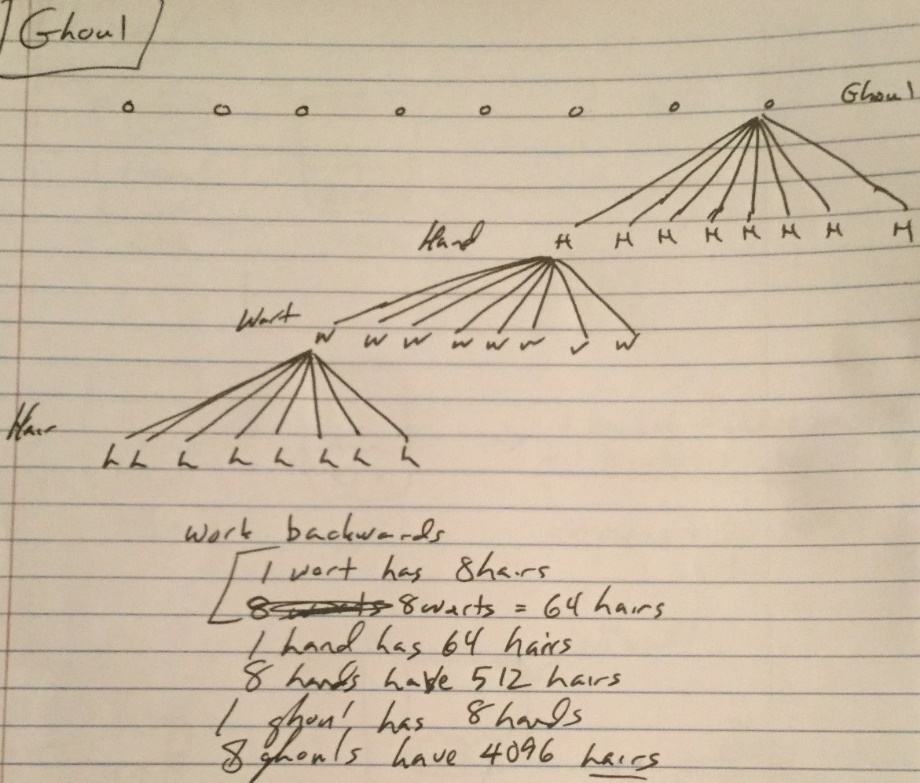 Ghoul
Ghoul
Hand H H H H H H H H
Wart W W W W W W W W
Hair h h h h h h h h
work backwards
1 wart has 8 hairs
8 warts 8 warts = 64 hairs
1 hand has 64 hairs
8 hands have 512 hairs
1 ghoul has 8 hands
8 ghouls have 4096 hairs